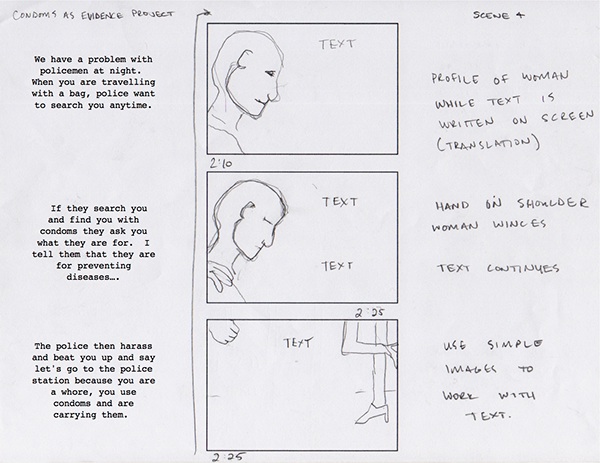 CONDOMS AS EVIDENCE PROJECT
SCENE 4
We have a problem with
policemen at night.
When you are travelling
with a bag, police want
to search you anytime.
TEXT
2:10
PROFILE OF WOMAN
WHILE TEXT IS
WRITTEN ON SCREEN
(TRANSLATION)
If they search you
and find you with
condoms they ask you
what they are for. I
tell them that they are
for preventing
diseases….
TEXT
TEXT
2:25
HAND ON SHOULDER
WOMAN WINCES
TEXT CONTINUES
The police then harass
and beat you up and say
let's go to the police
station because you are
a whore, you use
condoms and are
carrying them.
TEXT
2:25
USE SIMPLE
IMAGES TO
WORK WITH
TEXT.